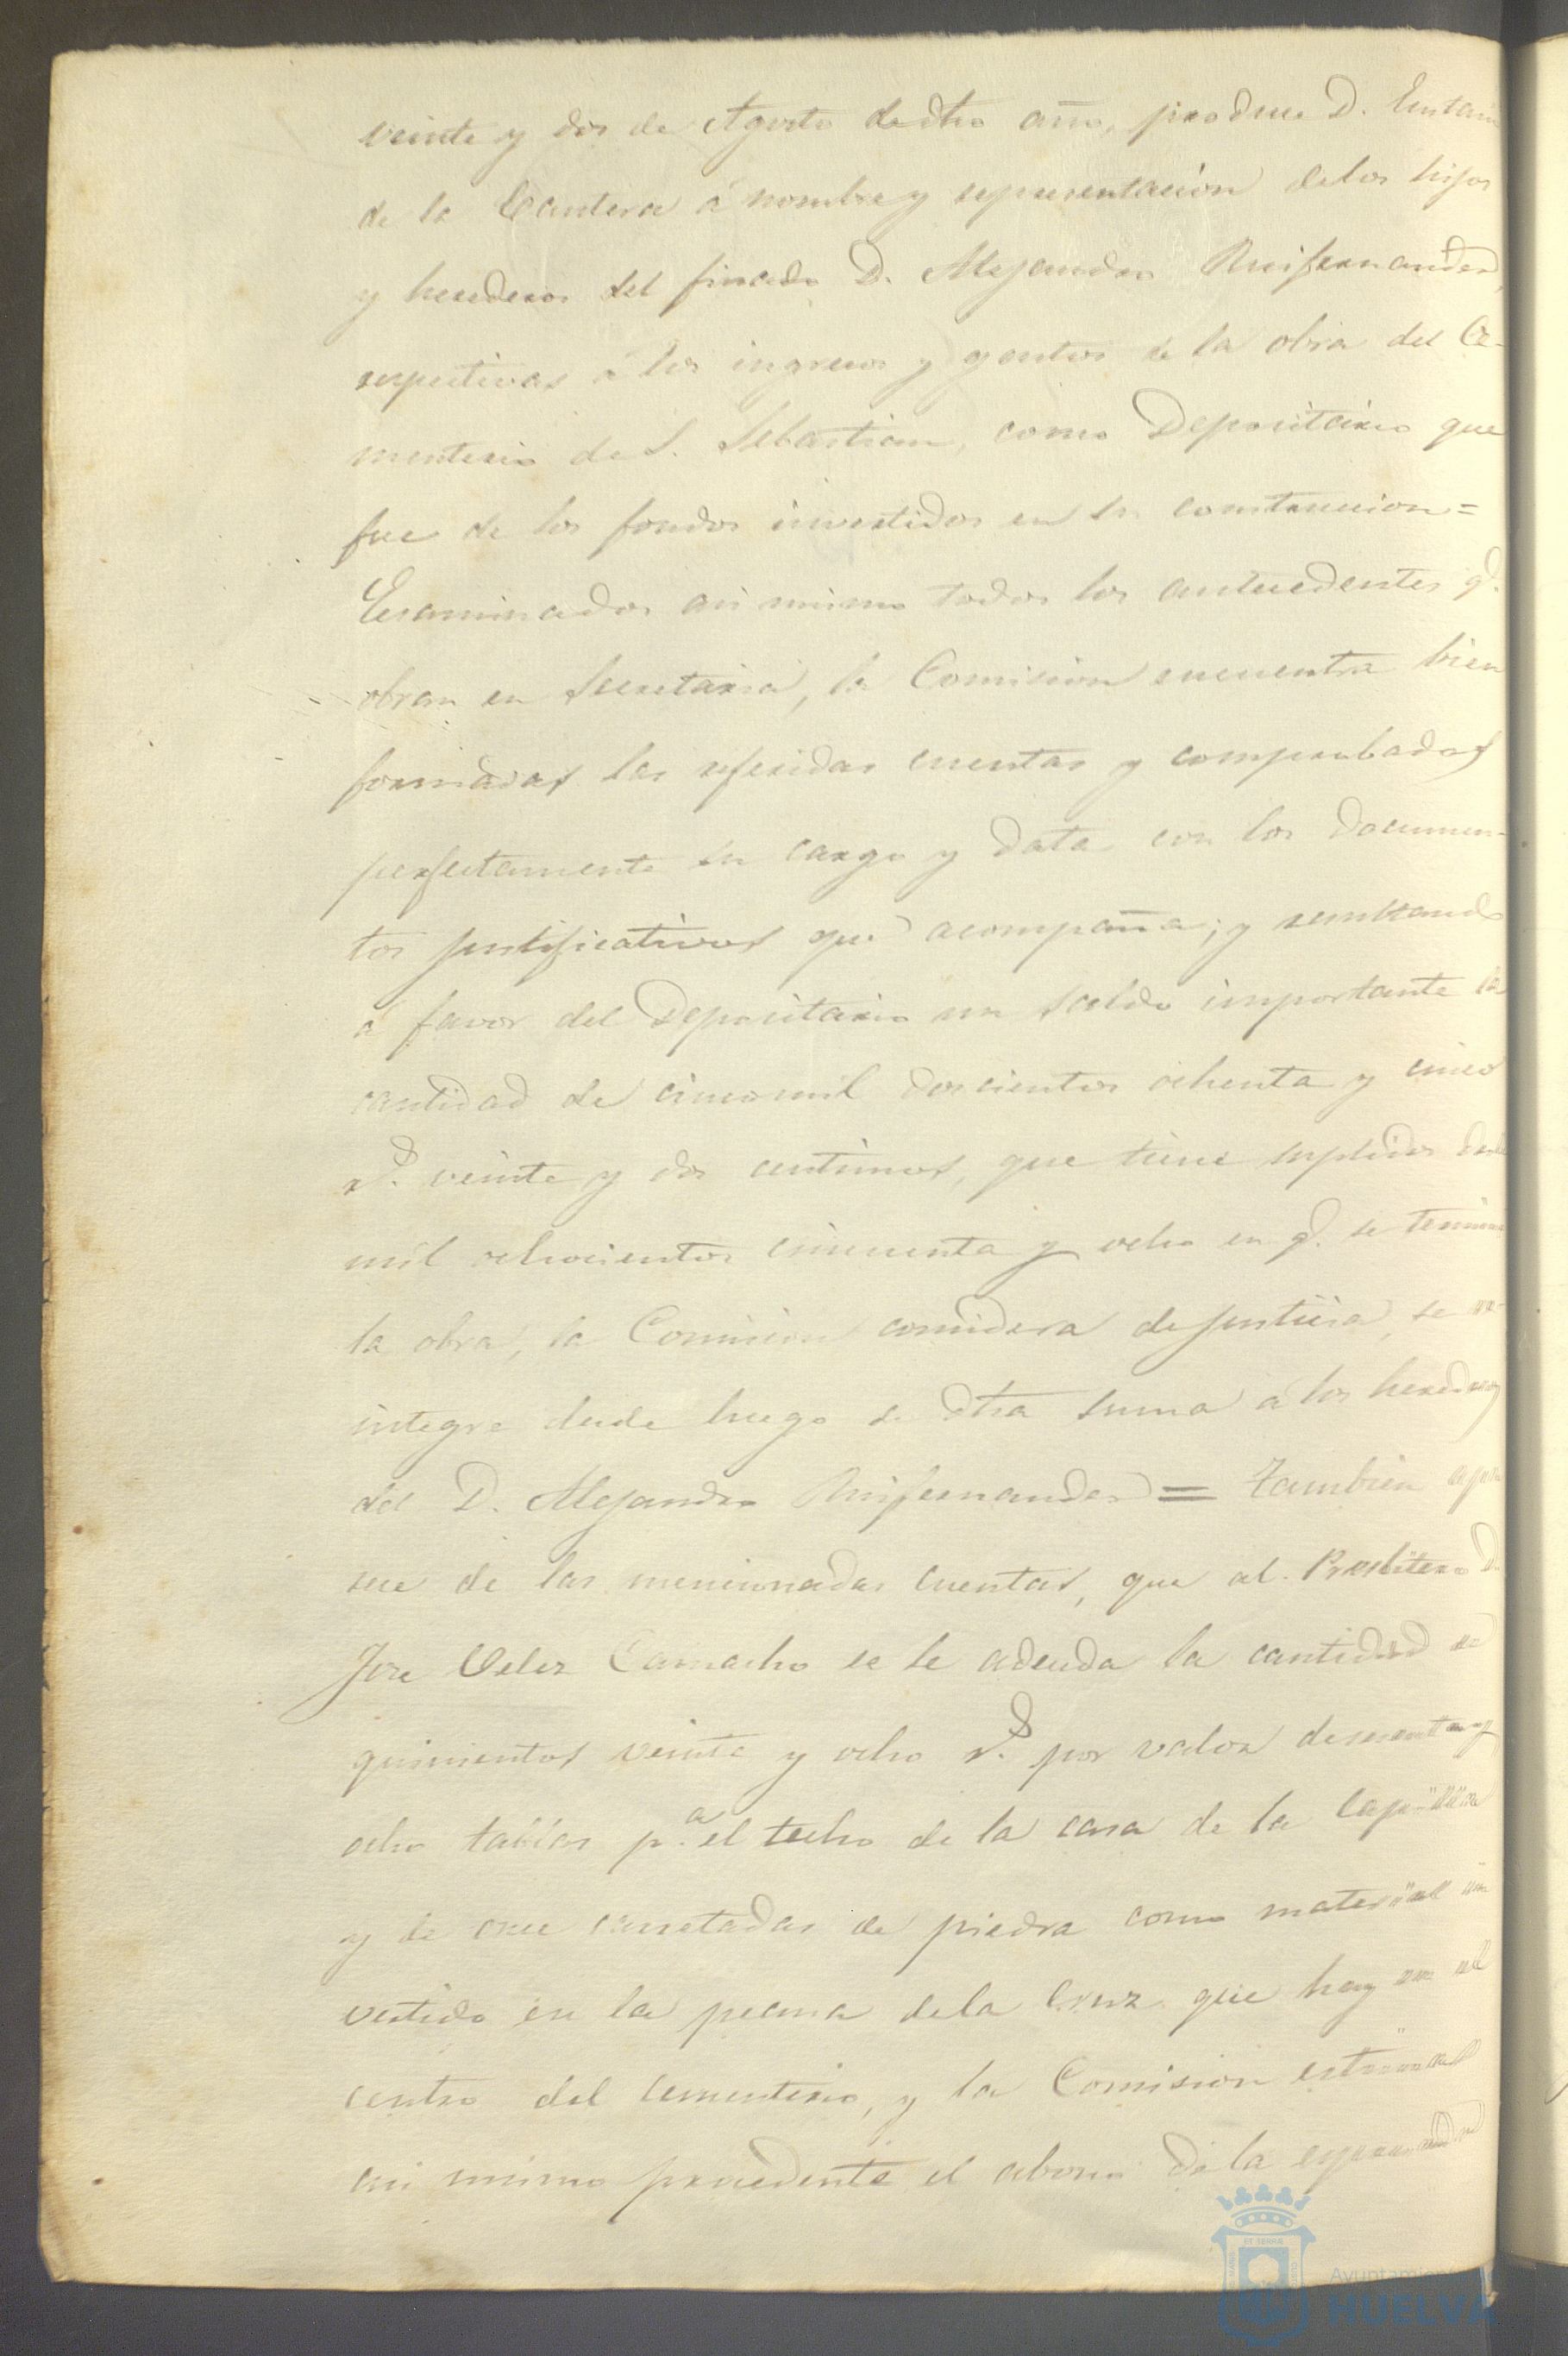 veinte y dos de Agosto de dho año, produce D. Eustaio
de la Cantera á nombre y representacion delos hijos
y herederos del finado D. Alejandro Ruifernandez,
respectivas á los ingresos y gastos de la obra del Ce-
menterio de S. Sebastian, como Depositario que
fue de los fondos invertidos en su construccion=
Ecsaminados asi mismo todos los antecedentes q.e
obran en Secretaria, la Comision encuentra bien
formadas las referidas cuentas y comprobadas
perfectamente su cargo y data con los documen-
tos justificativos que acompaña; y resultando
á favor del Depositario un saldo importante la
cantidad de cinco mil doscientos ochenta y cinco
r.s veinte y dos centimos, que tiene suplidos desde
mil ochocientos cincuenta y ocho en q.e se termino
la obra, la Comision considera de justicia, se re-
integre desde luego de dha suma á los herederos
del D. Alejandro Ruifernandez = Tambien apa
rece de las mencionadas cuentas, que al Presbitero D.
Jose Velez Camacho se le adeuda la cantidad de
quinientos veinte y ocho r.s por valor de sesenta y
ocho tablas p.a el techo de la casa de la Capilla
y de once carretadas de piedra como material in
vertido en la peana dela Cruz que hay en el
centro del cementerio, y la Comision estima
asi mismo procedente el abono de la espresada
Ayuntamie
HUELVA